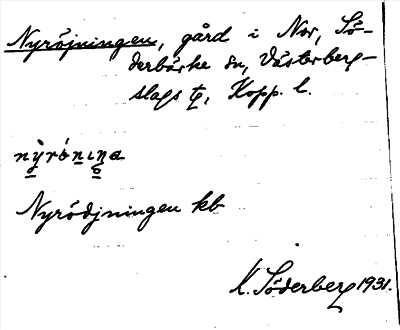 Nyröjningen, gård i Nor, Sö-
derbärke sn, Västerberg-
slags tg, Kopp. l.
Nyrödjningen kb
K. Söderberg 1931.